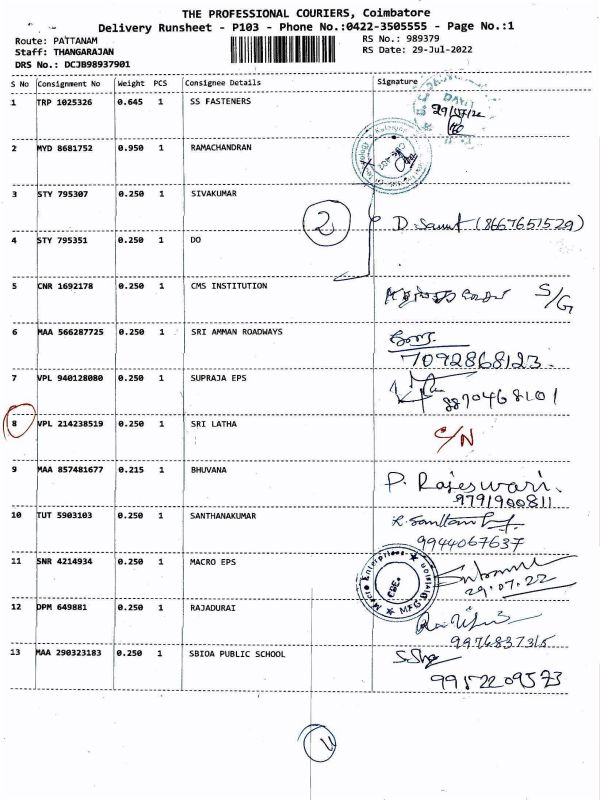 THE PROFESSIONAL COURIERS, Coimbatore
Delivery Runsheet - P103 - Phone No.:0422-3505555 - Page No.:1
Route: PATTANAM RS No.: 989379
Staff: THANGARAJAN RS Date: 29-Jul-2022
DRS No.: DCJB98937901
S No Consignment No Weight PCS Consignee Details Signature
1 TRP 1025326 0.645 1 SS FASTENERS
29/07/22
2 MYD 8681752 0.950 1 RAMACHANDRAN
3 STY 795307 0.250 1 SIVAKUMAR
2 D. (8667651529)
4 STY 795351 0.250 1 DO
5 CNR 1692178 0.250 1 CMS INSTITUTION S/G
6 MAA 566287725 0.250 1 SRI AMMAN ROADWAYS
7092868123
7 VPL 940128080 0.250 1 SUPRAJA EPS
8870468101
8 VPL 214238519 0.250 1 SRI LATHA C/N
9 MAA 857481677 0.215 1 BHUVANA P. Rajeswari.
9791900811
10 TUT 5903103 0.250 1 SANTHANAKUMAR
9944067637
11 SNR 4214934 0.250 1 MACRO EPS Macro Enterprises
29.07.22
12 DPM 649881 0.250 1 RAJADURAI
9976837315
13 MAA 290323183 0.250 1 SBIOA PUBLIC SCHOOL
9952209573